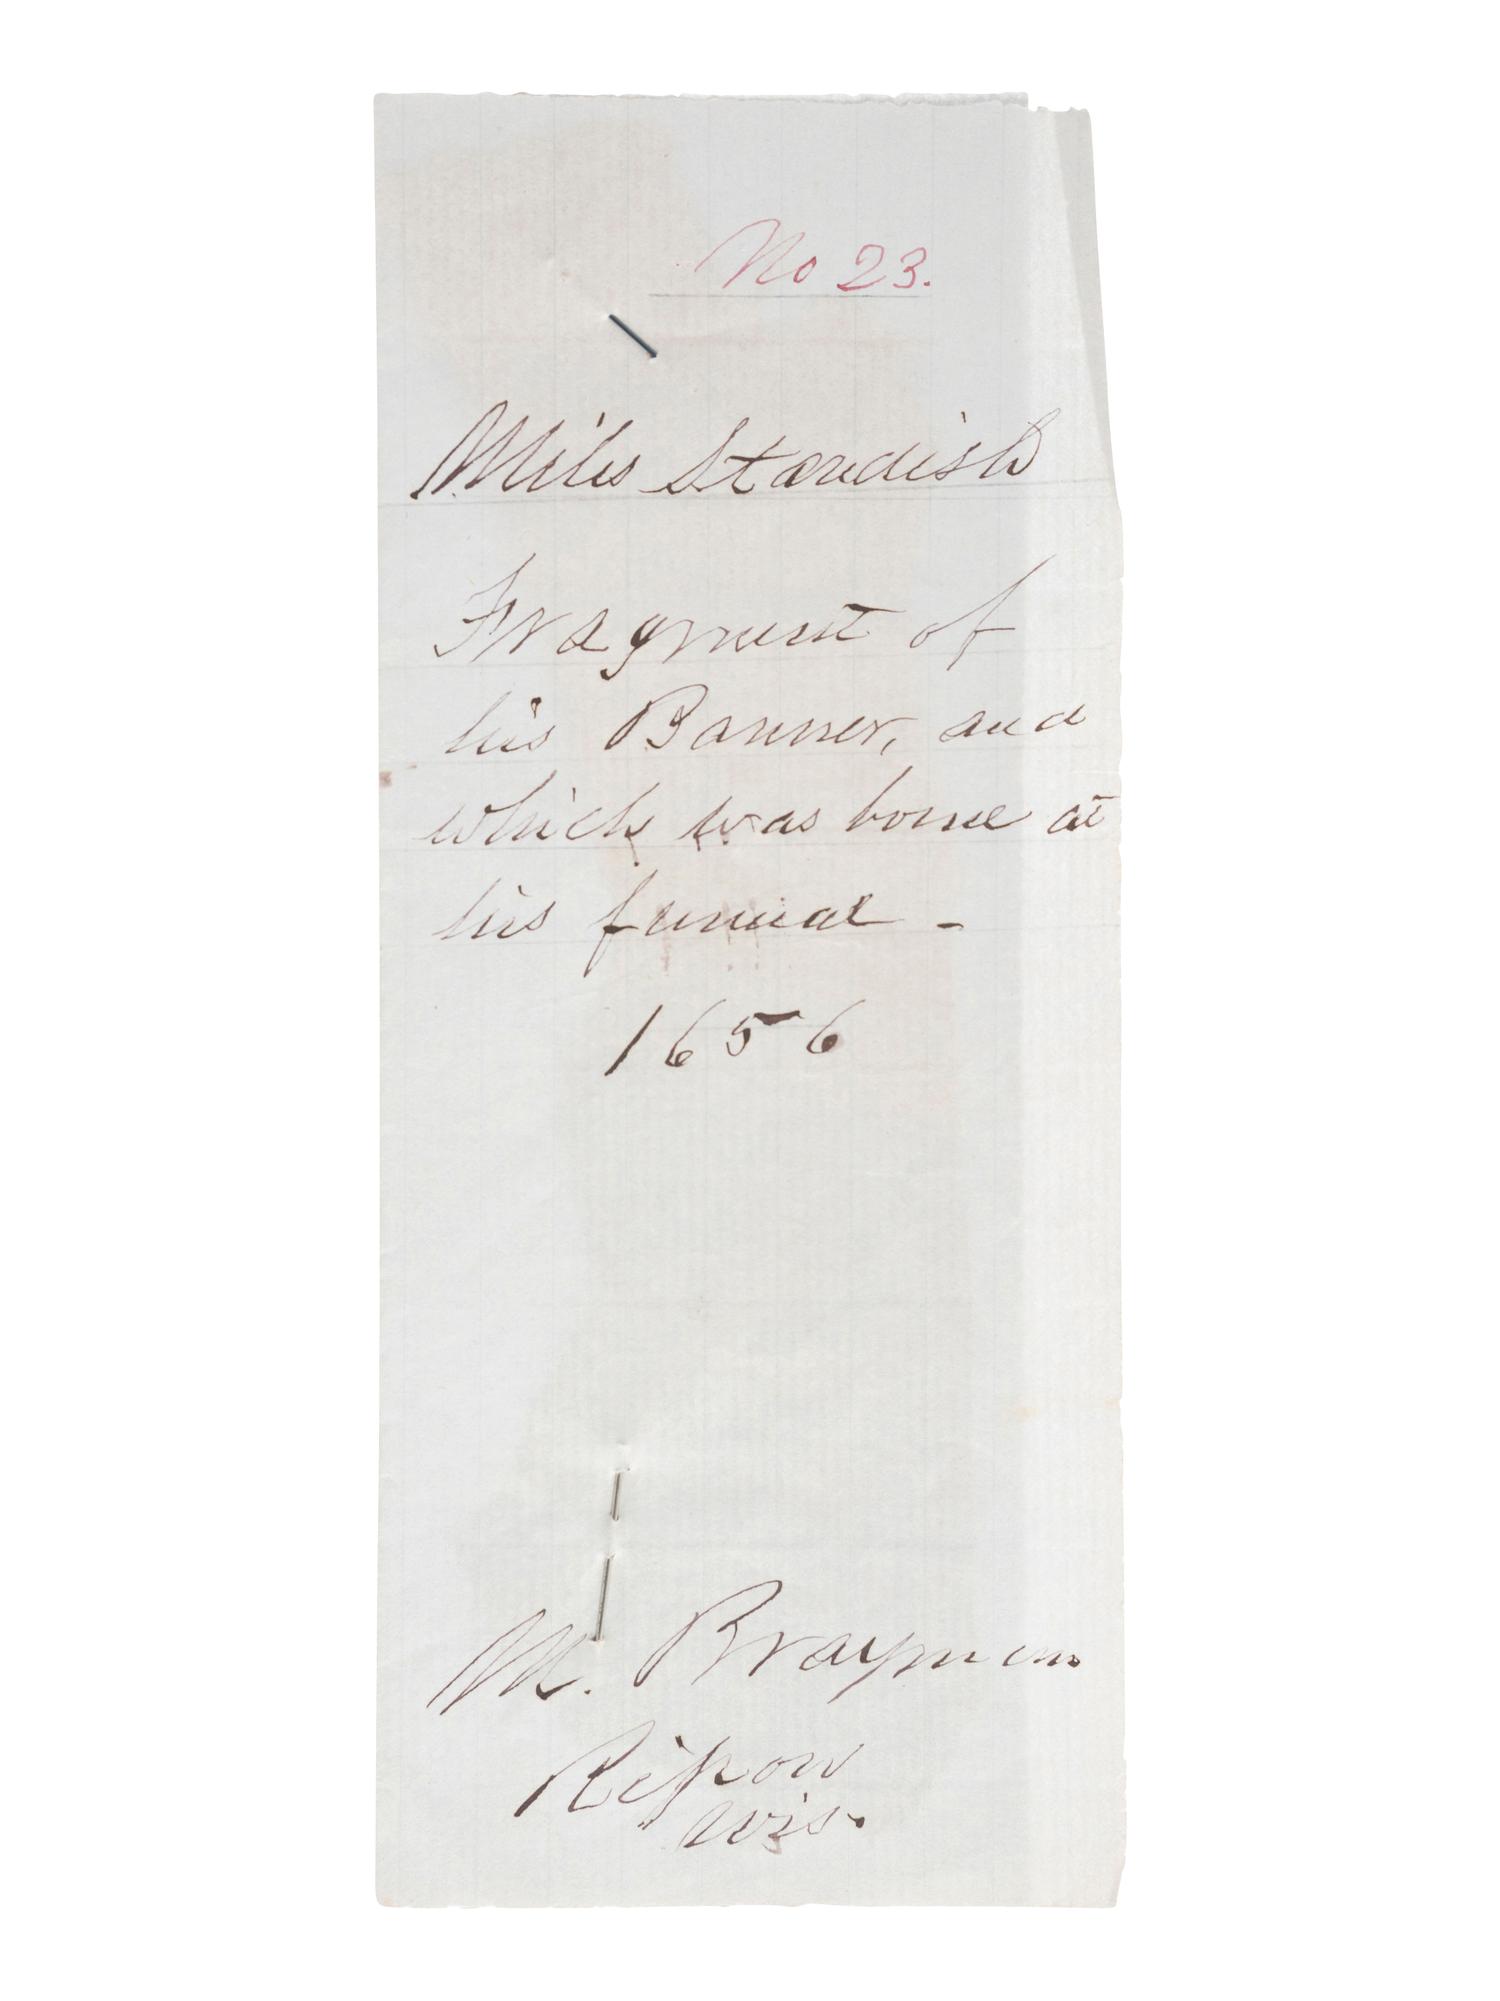 No 23.
Miles Standish
Fragment of
his Banner, and
which was borne at
his funeral -
1656
M. Brayman
Ripon
Wis.